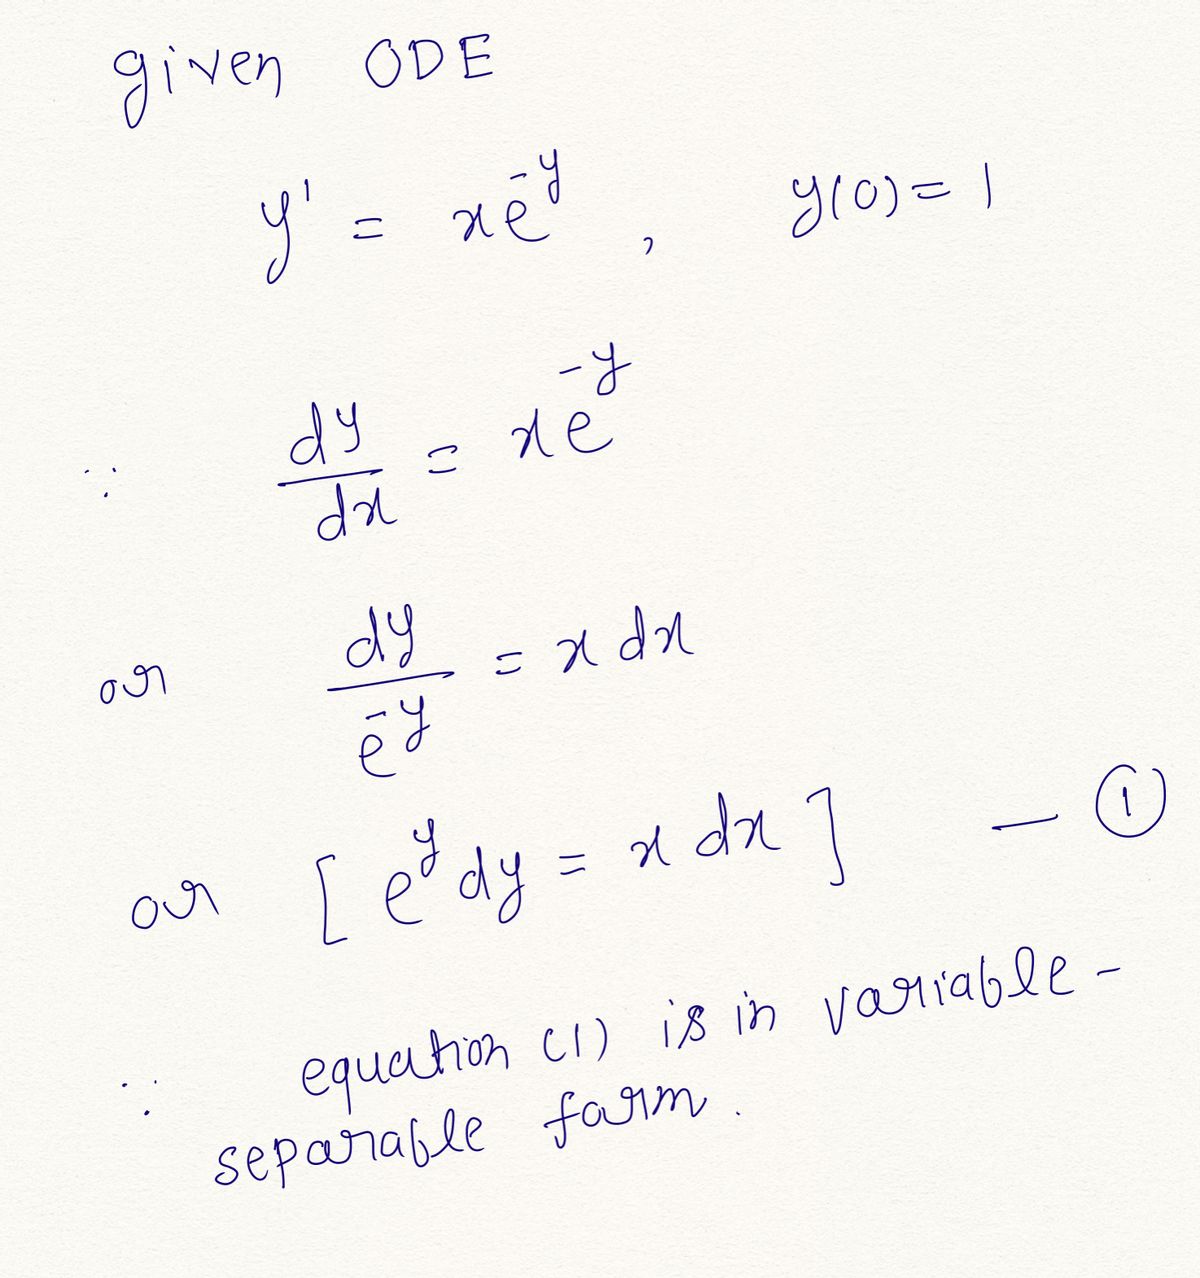 given ODE
y' = xe^{-y} , y(0) = 1
∵ dy/dx = xe^{-y}
or dy/e^{-y} = x dx
or [ e^y dy = x dx ] — ①
∵ equation (1) is in variable -
separable form .